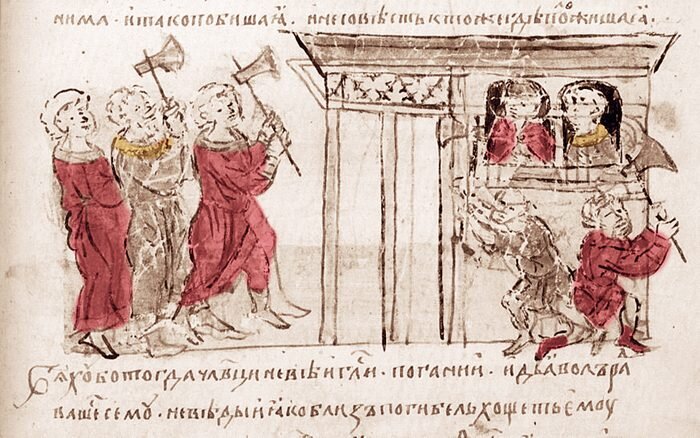 нима · и тако побишаꙗ · и несовѣсть ктоже гдѣ положишаꙗ ·
Бѧхоу бо тогда чл҃вци невѣигл҃си · погании · и дьꙗволъ ра
ваше семоу · невѣдыи ꙗко близъ погибель хощеть ємоу